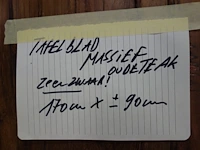 TAFELBLAD
MASSIEF
OUDE TEAK
Zeer ZWAAR!
170cm X ± 90cm